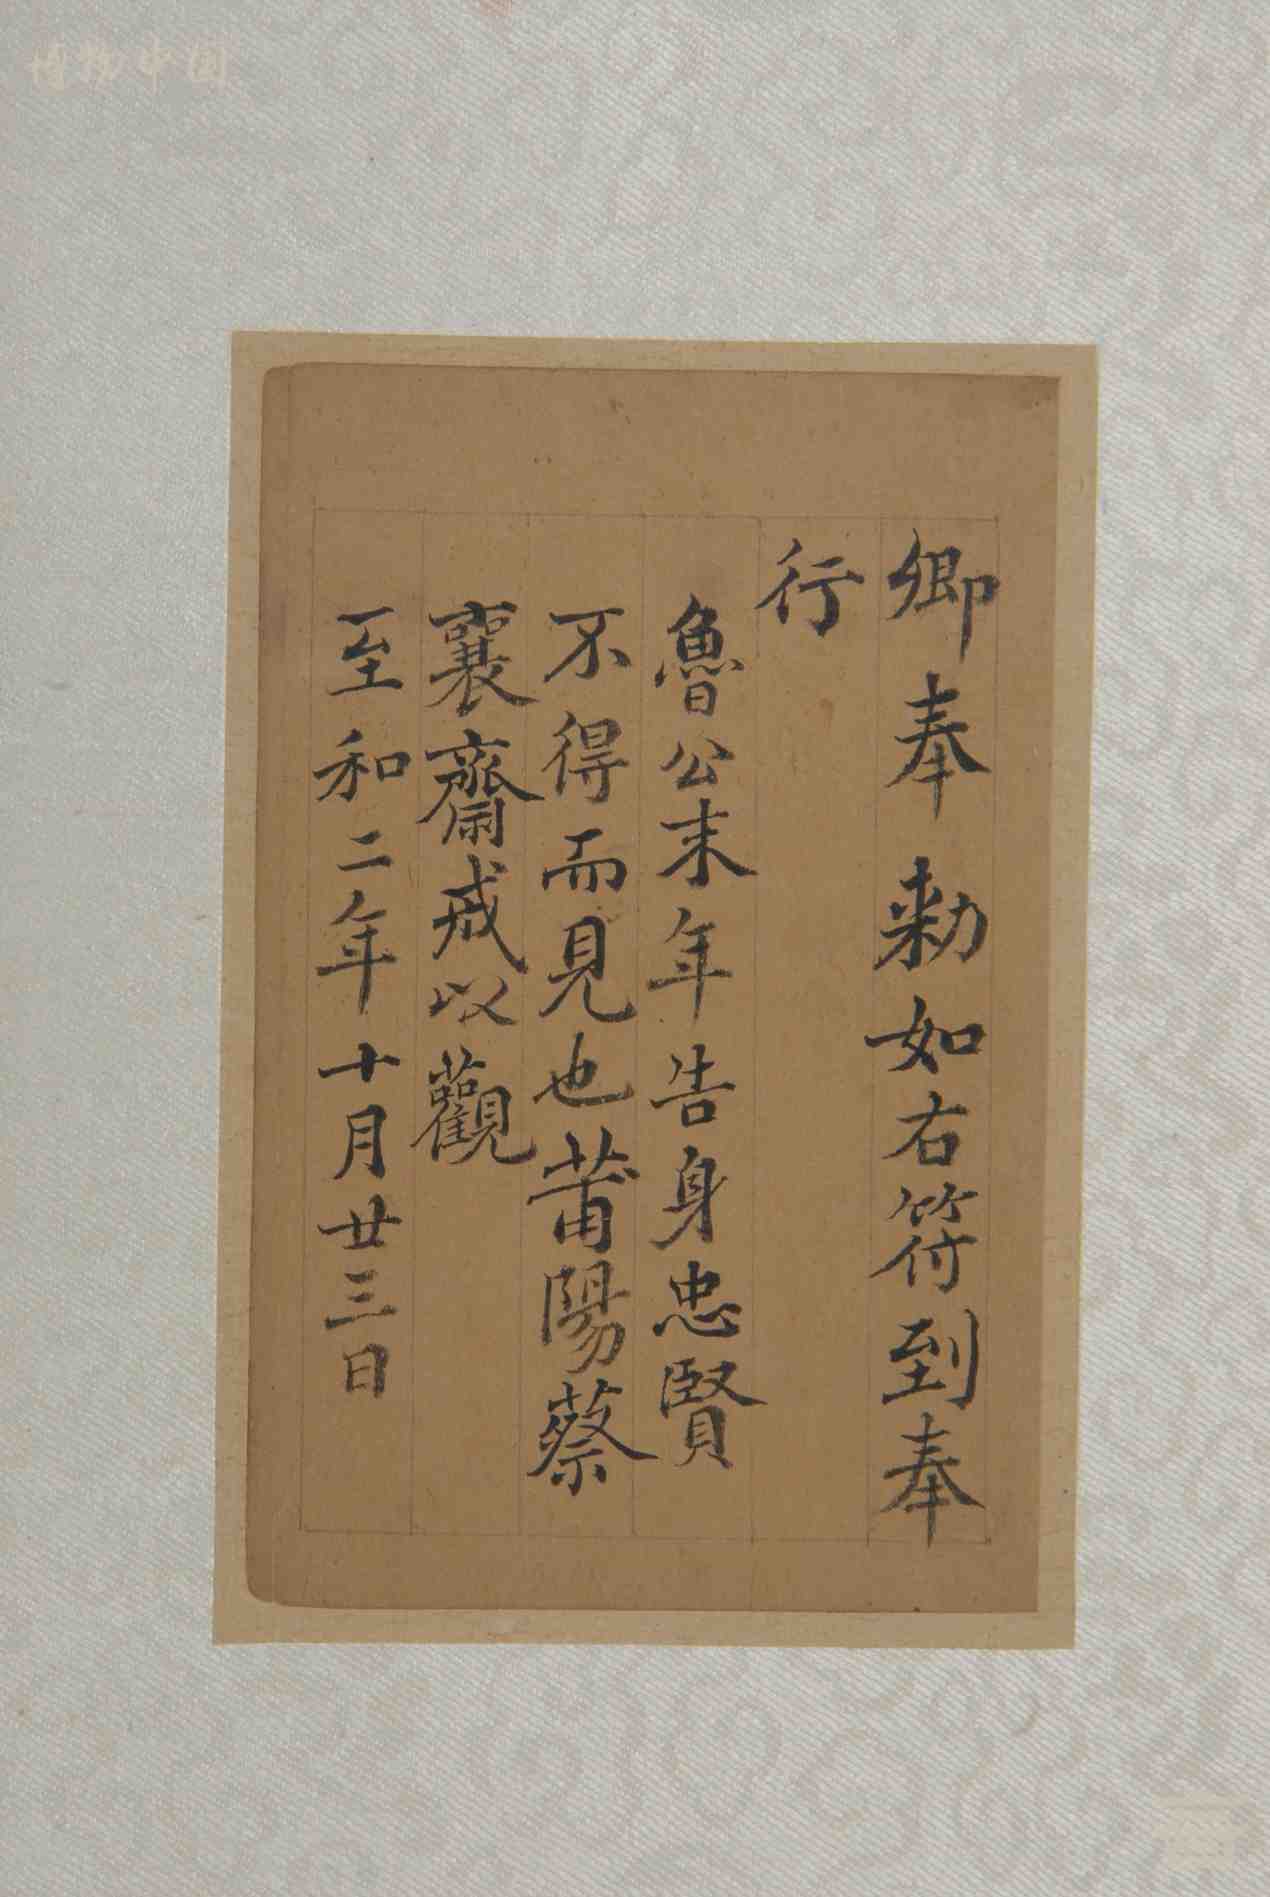 卿奉勑如右符到奉
行
魯公末年告身忠賢
不得而見也莆陽蔡
襄齋戒以觀
至和二年十月廿三日
博物中国